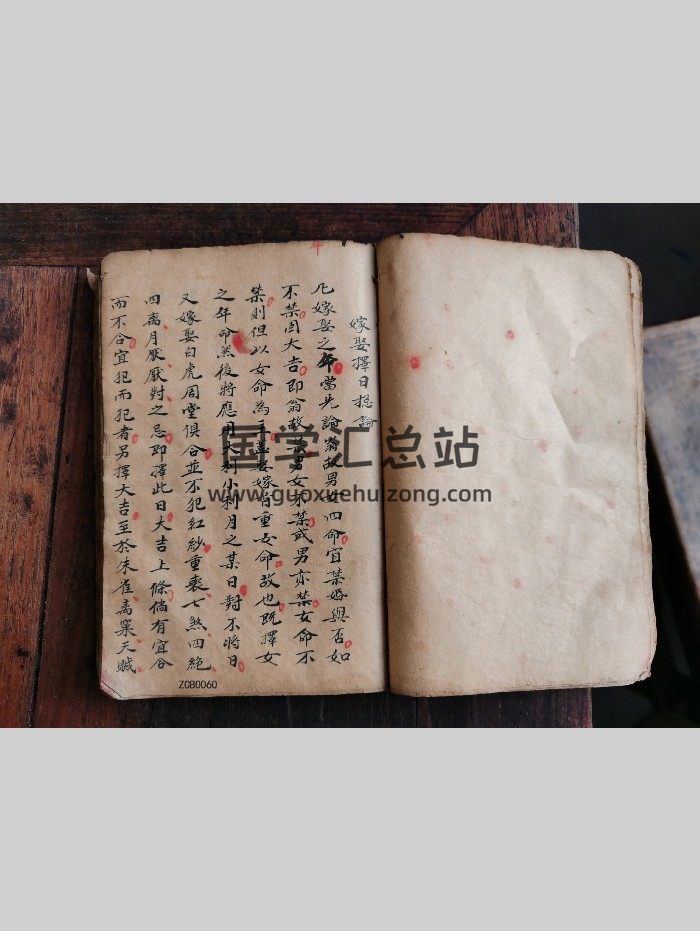 嫁娶擇日捴論
凡嫁娶之年當先論翁故男女四命宜禁婚與否如
不禁固大吉即翁故禁男女不禁或男亦禁女命不
禁則但以女命為主盖娶嫁首重女命故也既擇女
之年命然後將應月大利小利月之某日對不將日
又嫁娶白虎周堂俱合並不犯紅紗重喪七煞四絕
四离月厭厭對之忌即擇此日大吉上條倘有宜合
而不合宜犯而犯者另擇大吉至於朱雀离窠天賊
ZCB0060
国学汇总站
www.guoxuehuizong.com